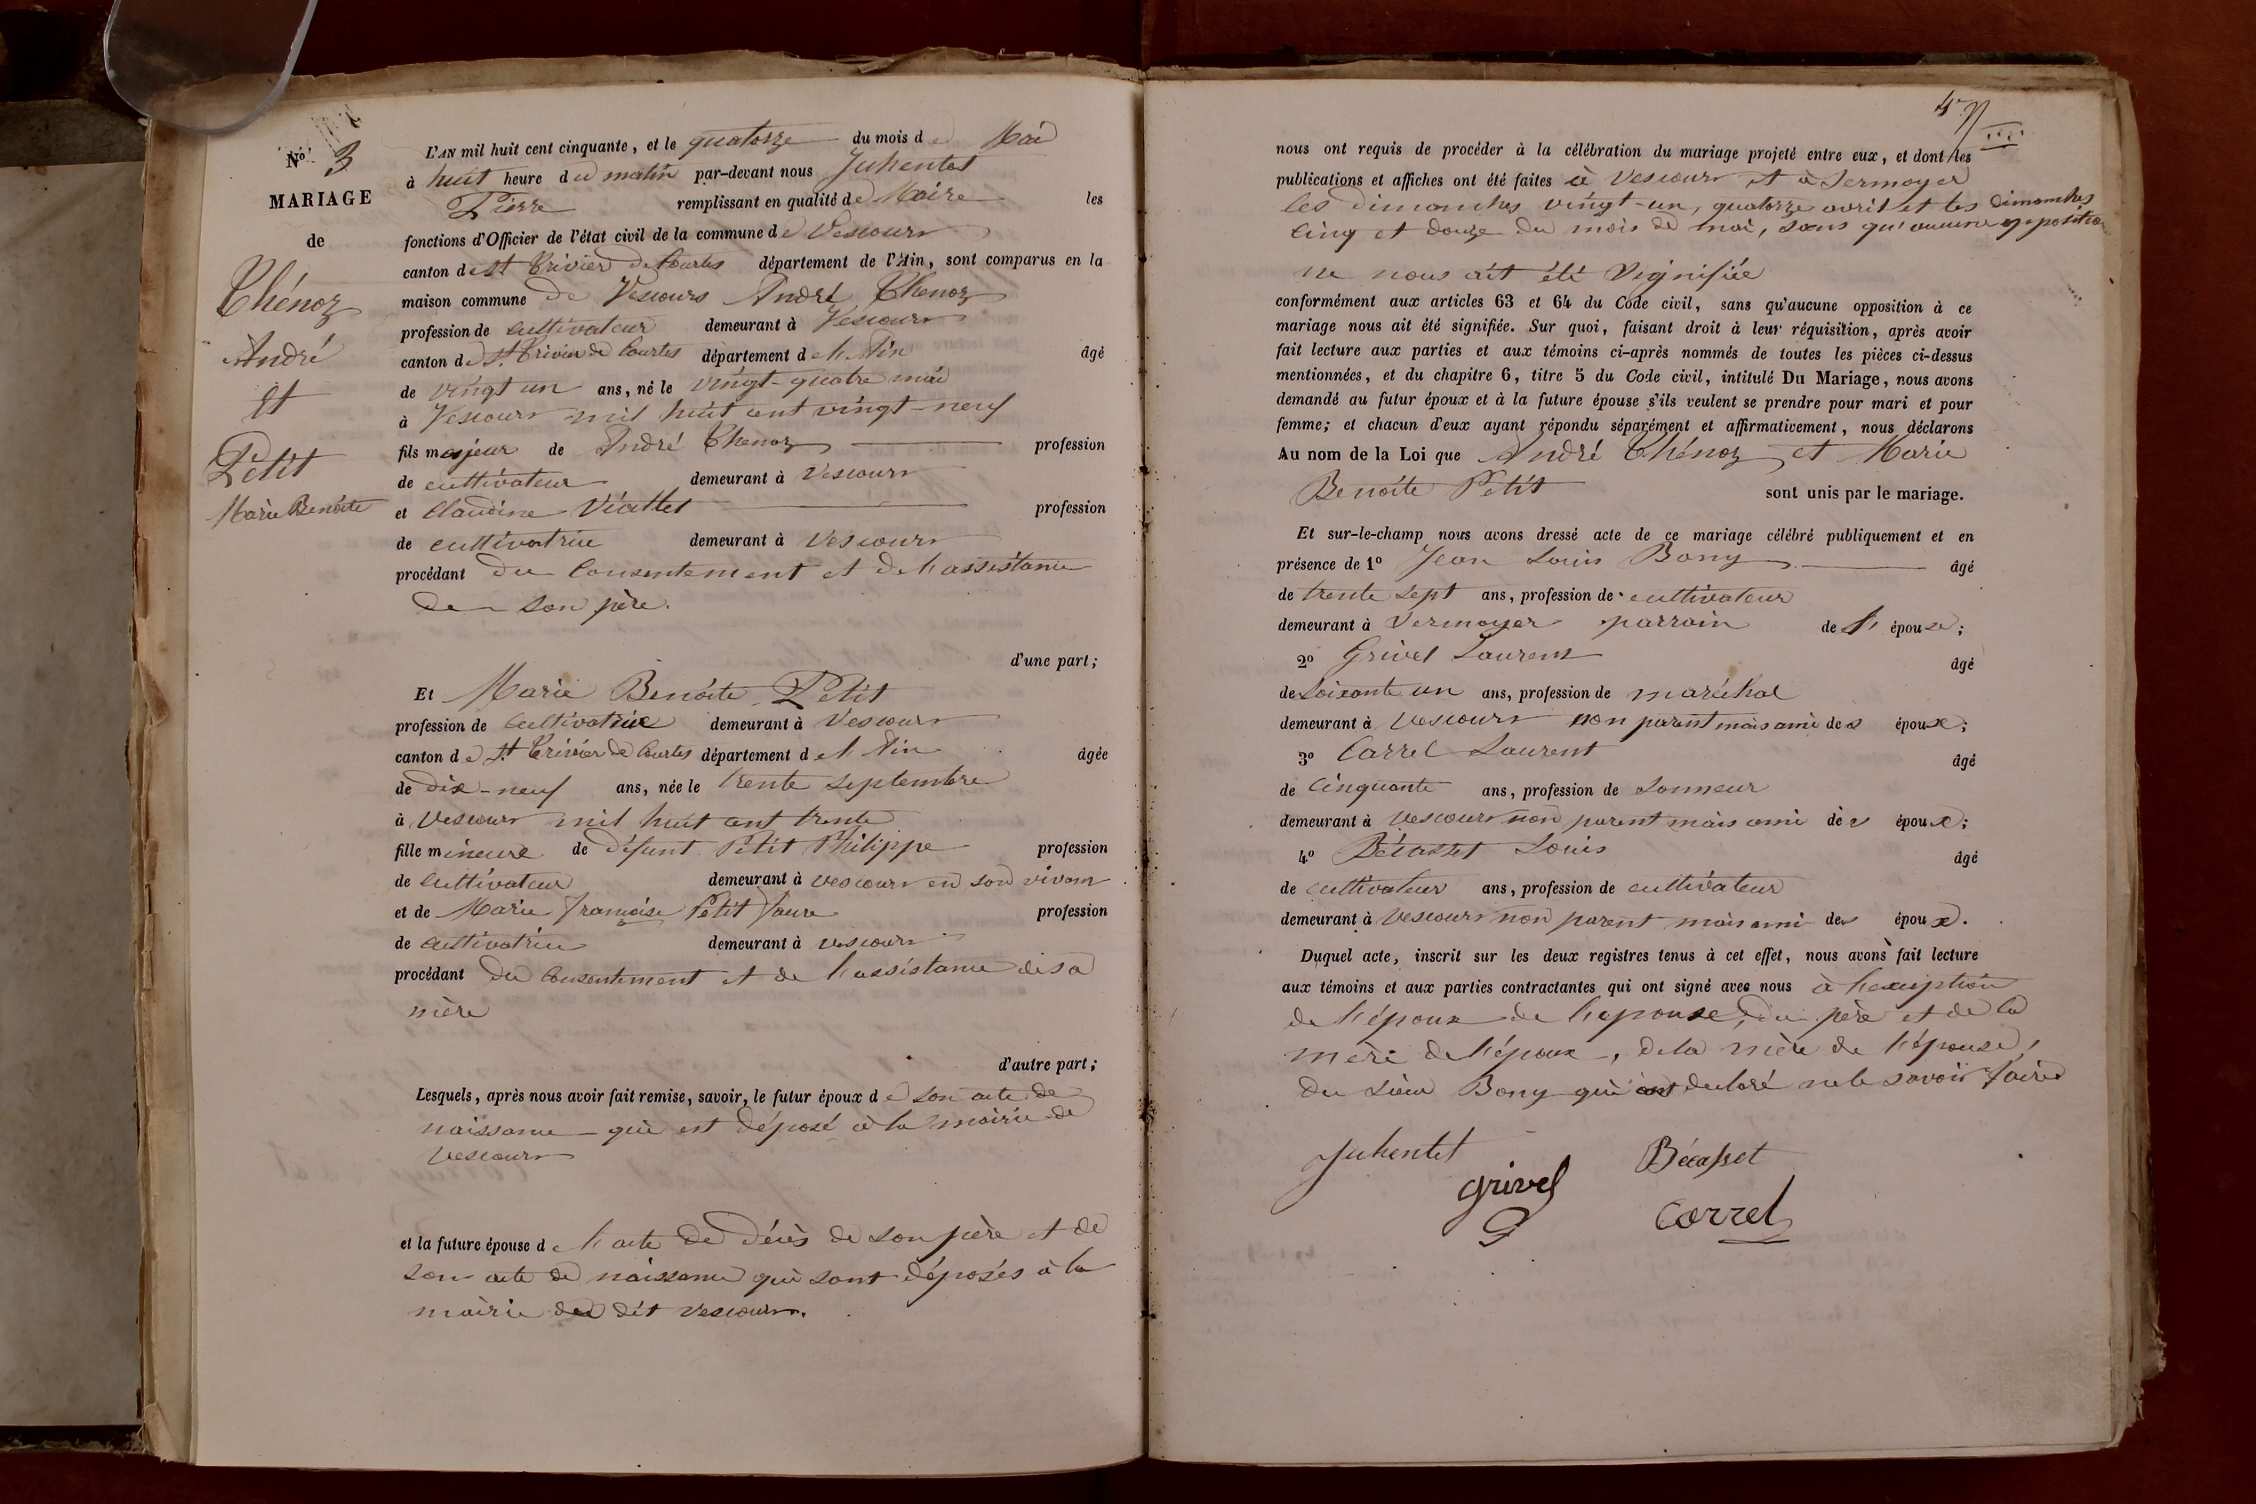 No 3
MARIAGE
de
Chénoz
André
et
Petit
Marie Benoite
L'AN mil huit cent cinquante, et le quatorze du mois de Mai
à huit heure du matin par-devant nous Juhentet
Pierre remplissant en qualité de Maire les
fonctions d'Officier de l'état civil de la commune de Vescours
canton de St Trivier de Courtes département de l'Ain, sont comparus en la
maison commune de Vescours André Chenoz
profession de cultivateur demeurant à Vescours
canton de St Trivier de Courtes département de l'Ain âgé
de vingt un ans, né le vingt-quatre mai
à Vescours mil huit cent vingt-neuf
fils majeur de André Chenoz profession
de cultivateur demeurant à Vescours
et Claudine Viallet profession
de cultivatrice demeurant à Vescours
procédant du Consentement et de l'assistance
de son père.
d'une part;
Et Marie Benoite Petit
profession de cultivatrice demeurant à Vescours
canton de St Trivier de Courtes département de l'Ain âgée
de dix-neuf ans, née le trente septembre
à Vescours mil huit cent trente
fille mineure de défunt Petit Philippe profession
de cultivateur demeurant à Vescours en son vivant
et de Marie Françoise Petit Faure profession
de cultivatrice demeurant à Vescours
procédant du Consentement et de l'assistance de sa
mère
d'autre part;
Lesquels, après nous avoir fait remise, savoir, le futur époux de son acte de
naissance qui est déposé à la mairie de
Vescours
et la future épouse de l'acte de décès de son père et de
son acte de naissance qui sont déposés à la
mairie du dit Vescours.
47
nous ont requis de procéder à la célébration du mariage projeté entre eux, et dont les
publications et affiches ont été faites à Vescours et à Sermoyer
les dimanches vingt-un, quatorze avril et les dimanches
cinq et douze du mois de mai, sans qu'aucune opposition
ne nous ait été signifiée
conformément aux articles 63 et 64 du Code civil, sans qu'aucune opposition à ce
mariage nous ait été signifiée. Sur quoi, faisant droit à leur réquisition, après avoir
fait lecture aux parties et aux témoins ci-après nommés de toutes les pièces ci-dessus
mentionnées, et du chapitre 6, titre 5 du Code civil, intitulé Du Mariage, nous avons
demandé au futur époux et à la future épouse s'ils veulent se prendre pour mari et pour
femme; et chacun d'eux ayant répondu séparément et affirmativement, nous déclarons
Au nom de la Loi que André Chénoz et Marie
Benoite Petit sont unis par le mariage.
Et sur-le-champ nous avons dressé acte de ce mariage célébré publiquement et en
présence de 1º Jean Louis Bony âgé
de trente sept ans, profession de cultivateur
demeurant à Sermoyer parrain de l' épouse;
2º Grivel Laurent âgé
de soixante un ans, profession de maréchal
demeurant à Vescours non parent mais ami des époux;
3º Carrel Laurent âgé
de cinquante ans, profession de Sonneur
demeurant à Vescours non parent mais ami des époux;
4º Bécasset Louis âgé
de cultivateur ans, profession de cultivateur
demeurant à Vescours non parent mais ami des époux.
Duquel acte, inscrit sur les deux registres tenus à cet effet, nous avons fait lecture
aux témoins et aux parties contractantes qui ont signé avec nous à l'exception
de l'époux de l'epouse, du père et de la
mère de l'époux, de la mère de l'épouse,
du sieur Bony qui ont declaré ne le savoir faire
Juhentet
Bécasset
Grivel
Correl